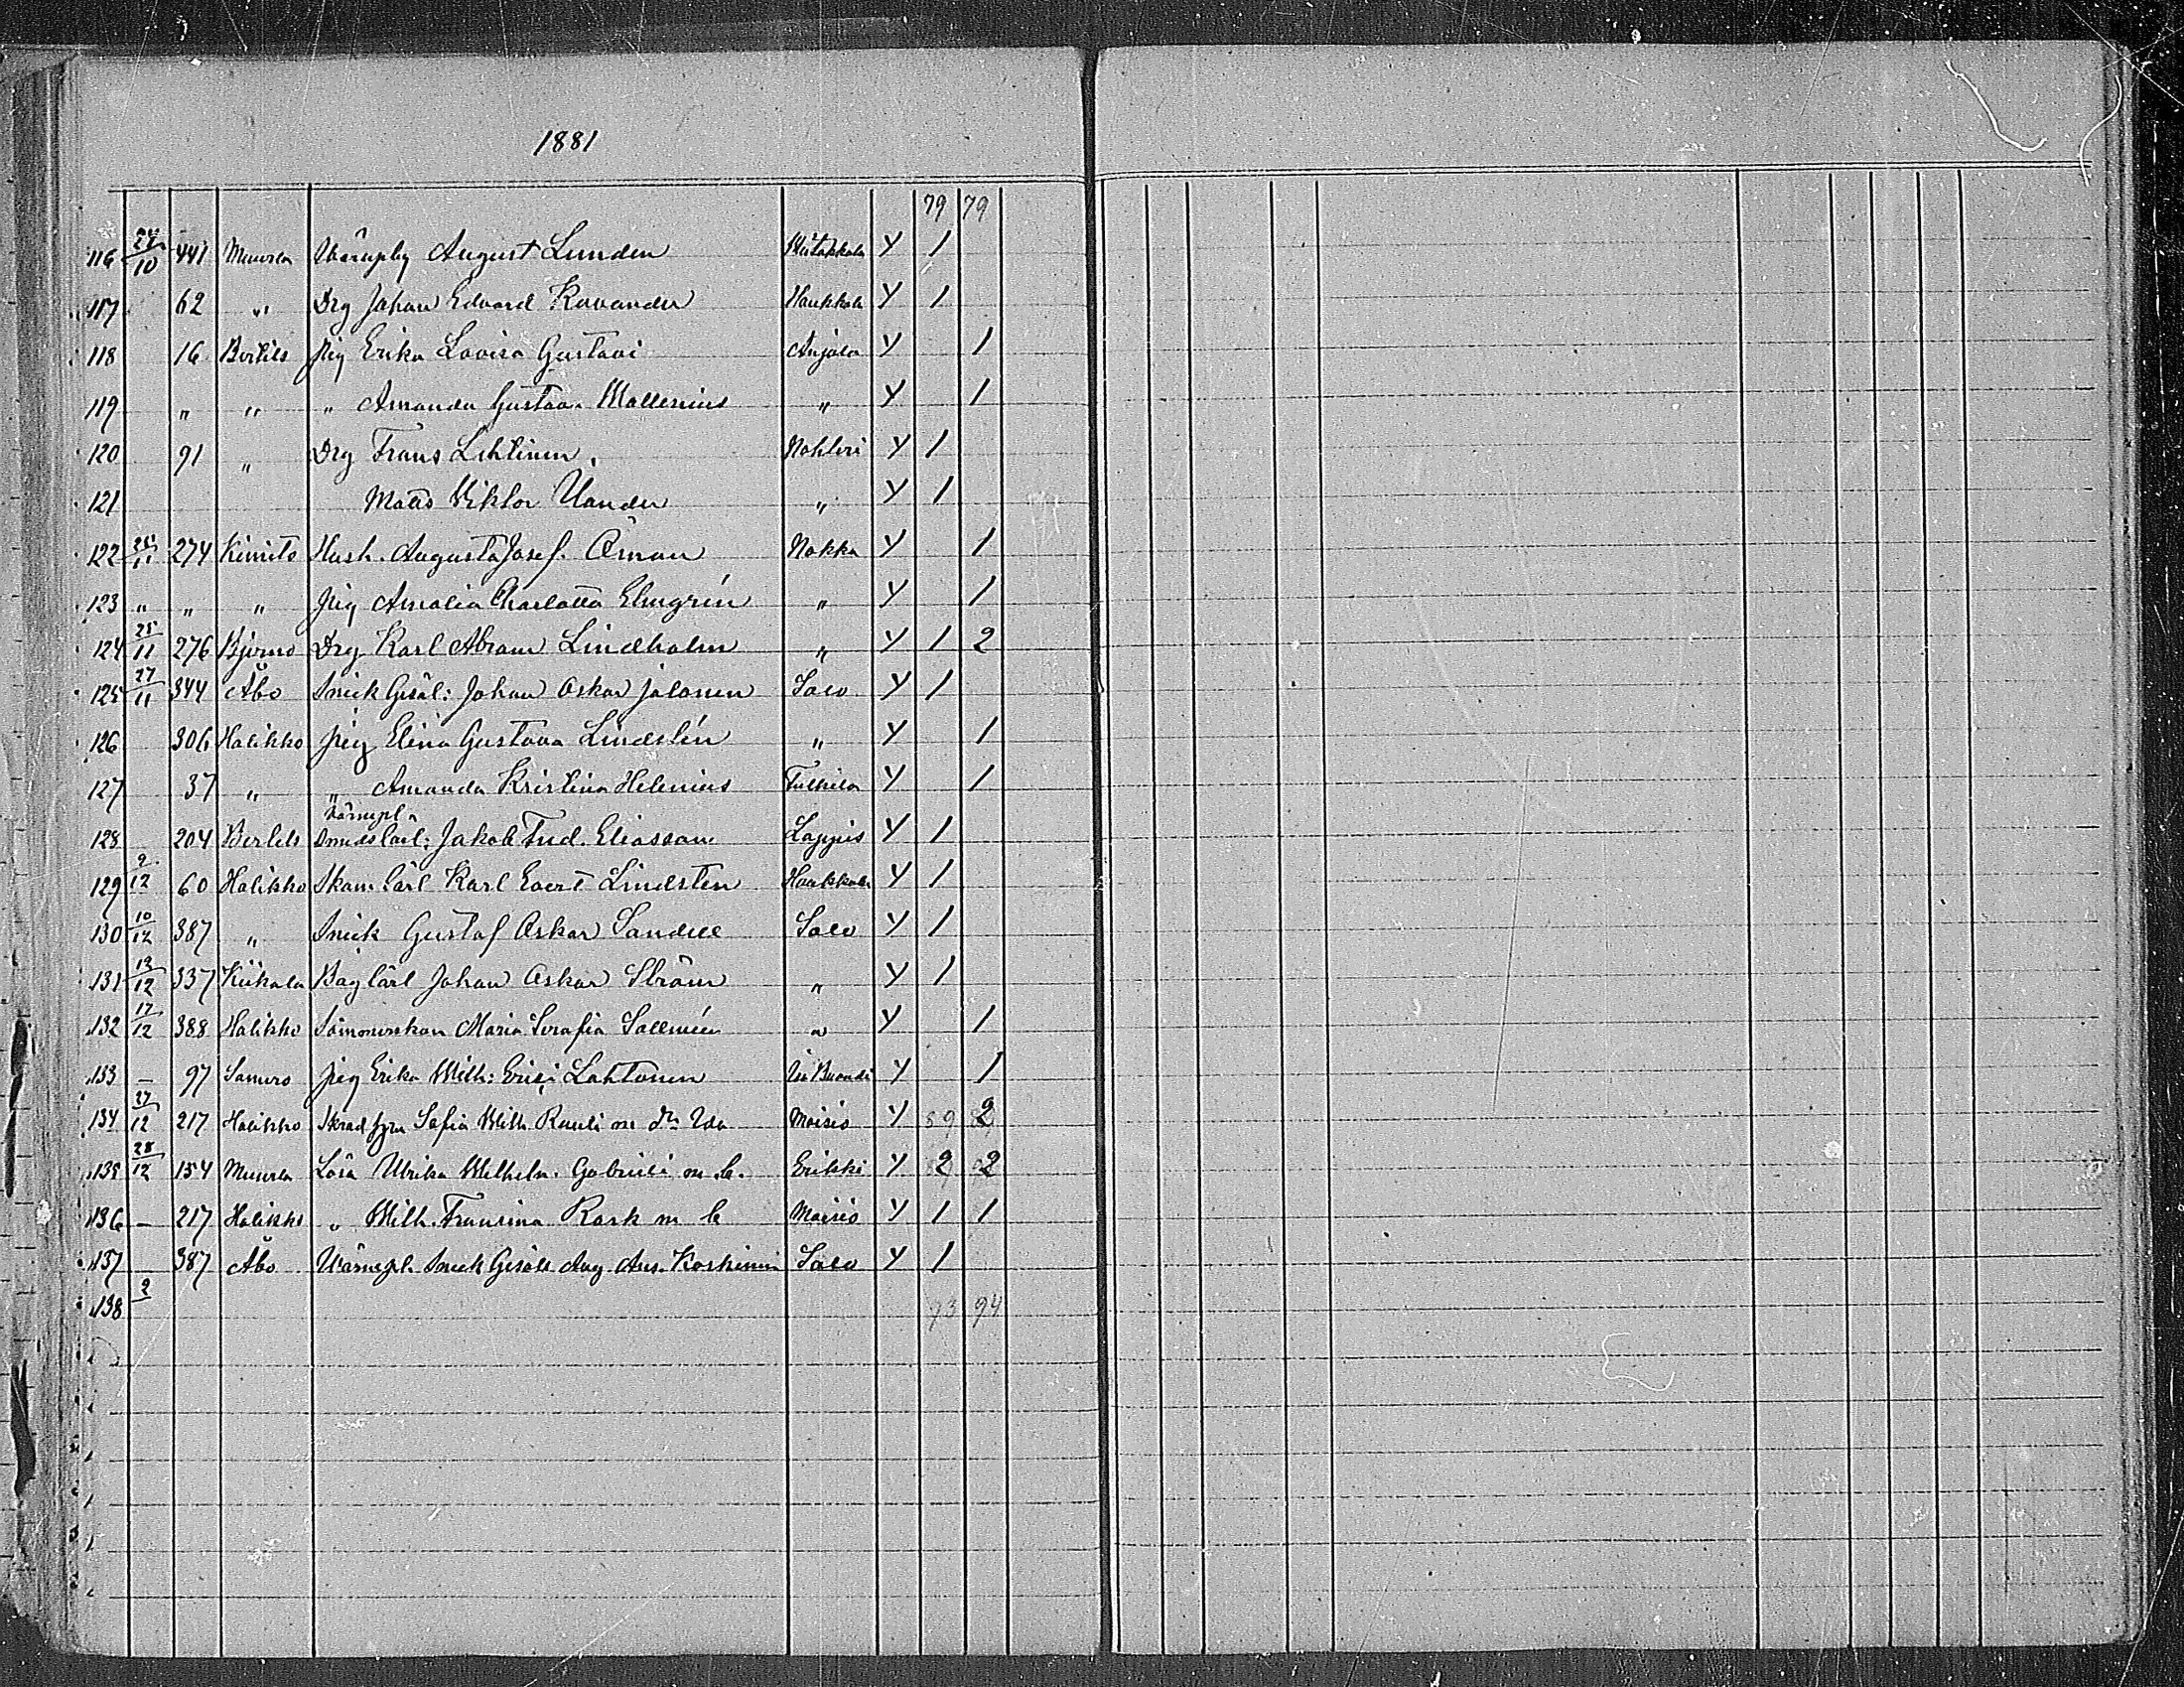 1881
79 79
116 24/10 441 Muurla Värnplig August Lunden Y 1
117 62 " Drg Johan Edvard Kavander Haukkala Y 1
118 16 Bertils Pig Erika Lovisa Gustavi Anjala Y 1
119 " " " Amanda Gustava Wallenius " Y 1
120 91 " Drg Frans Lehtinen Y 1
121 Matts Viktor Uander " Y 1
122 25/11 274 Kimito Hush. Augusta Josef. Öman Nokka Y 1
123 " " " Pig Amalia Charlotta Elmgrén " Y 1
124 25/11 276 Bjerno Drg Karl Abram Lindholm " Y 1 2
125 27/11 344 Åbo Snick Gesäl: Johan Oskar Jalonen Salo Y 1
126 306 Halikko Pig Elina Gustava Lindstén " Y 1
127 37 " " Amanda Kristina Helenius Y 1
Värnepl.
128 204 Bertils Jakob Fred. Eliasson Lappis Y 1
129 9/12 60 Halikko Karl Evert Lindsten Haukkala Y 1
130 10/12 387 " Snick Gustaf Oskar Sandell Salo Y 1
131 12/12 337 Kiikala Johan Oskar Ström " Y 1
132 17/12 388 Halikko Sömmerskan Maria Serafia Y 1
133 — 97 Somero Pig Erika Wilh: Erici Lahtonen Y 1
134 27/12 217 Halikko Sofia Wilh. Rauli m dr Ida Moisio Y 59 2
135 28/12 154 Muurla Lösa Ulrika Wilhelm. Gabrieli m b. Erikki Y 2 2
136 — 217 Halikko " Wilh. Fransina Rask m b Moisio Y 1 1
137 387 Åbo Värnepl. Snick Gesäll Aug. Ans. Koskinen Salo Y 1
138 2 93 94